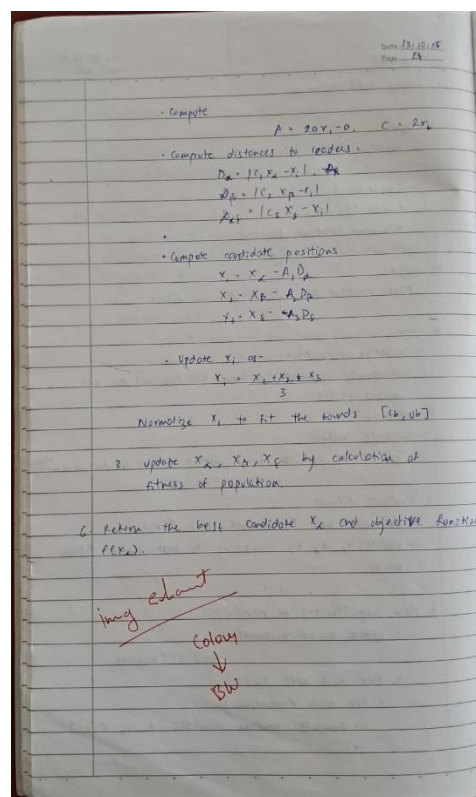 Date 13/10/25
Page 24
• Compute
A = 2ar₁ - a, C = 2r₂
• Compute distances to leaders.
Dα = |C₁Xα - Xᵢ|
Dβ = |C₂ Xβ - Xᵢ|
= |C₃ Xδ - Xᵢ|
• Compute candidate positions
X₁ = Xα - A₁Dα
= Xβ - A₂Dβ
= Xδ - A₃Dδ
• Update Xᵢ as-
Xᵢ = X₁ + X₂ + X₃
3
Normalize Xᵢ to fit the bounds [lb, ub]
3. update Xα, Xβ, Xδ by calculation of
fitness of population.
6. Return the best candidate Xα and objective function
f(Xα).
img
Colour
↓
BW